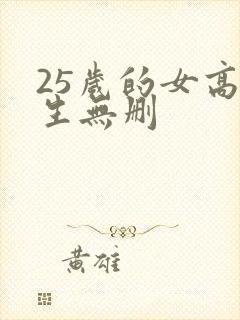 25歲的女高
生無删
黄雄